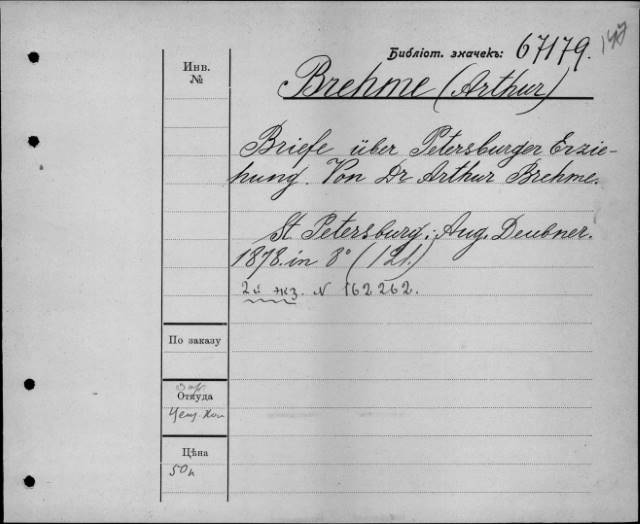 Библіот. значекъ: 67179.
Инв.
№
Brehme (Arthur)
Briefe über Petersburger Erzie-
hung. Von Dr Arthur Brehme.
St Petersburg; Aug. Deubner.
1878. in 8° (1 Lf.)
2й экз. N 162262.
По заказу
Откуда
Ценз. Ком
Цѣна
50к